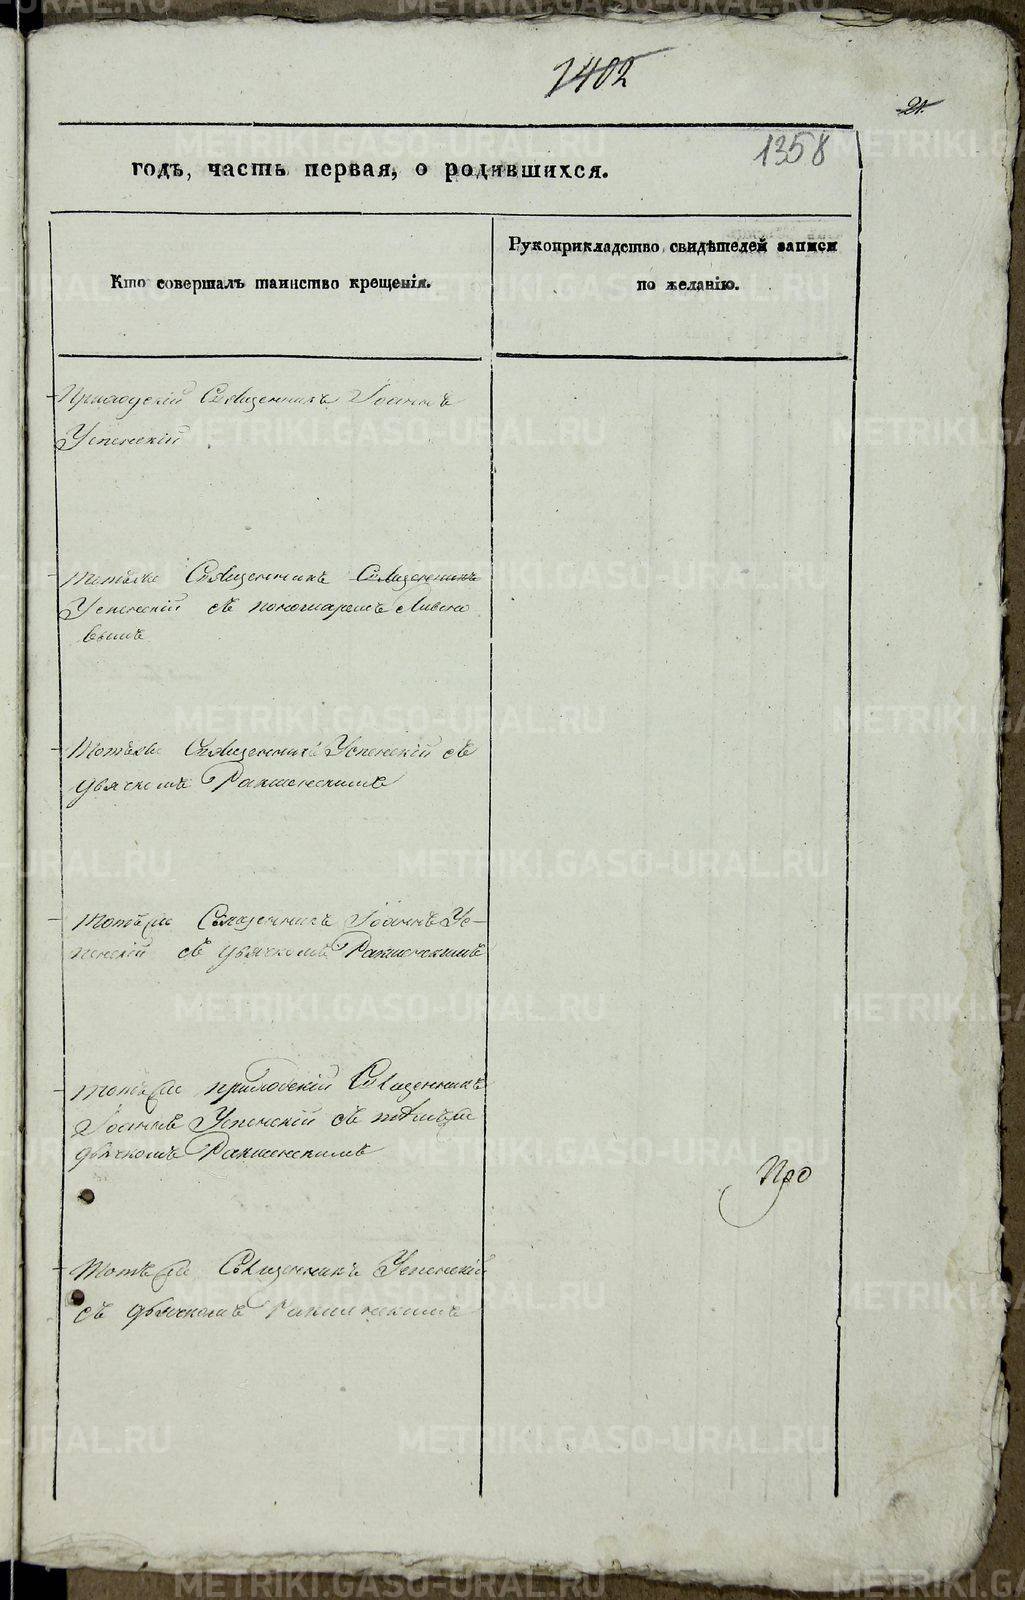 1402
21.
1358
годъ, часть первая, о родившихся.
Кто совершалъ таинство крещенія.
Рукоприкладство свидѣтелей записи
по желанію.
Приходскій Священникъ Іоаннъ
Успенскій
Тотъже Священникъ Священникъ
Успенскій съ пономаремъ
вымъ
Тотъже Священникъ Успенскій съ
дьячкомъ
Тотъже Священникъ Іоаннъ Ус-
пенскій съ дьячкомъ
Тотъже приходскій Священникъ
Іоаннъ Успенскій съ тѣмъже
дьячкомъ
Про
Тотъже Священникъ Успенскій
съ дьячкомъ
METRIKI.GASO-URAL.RU